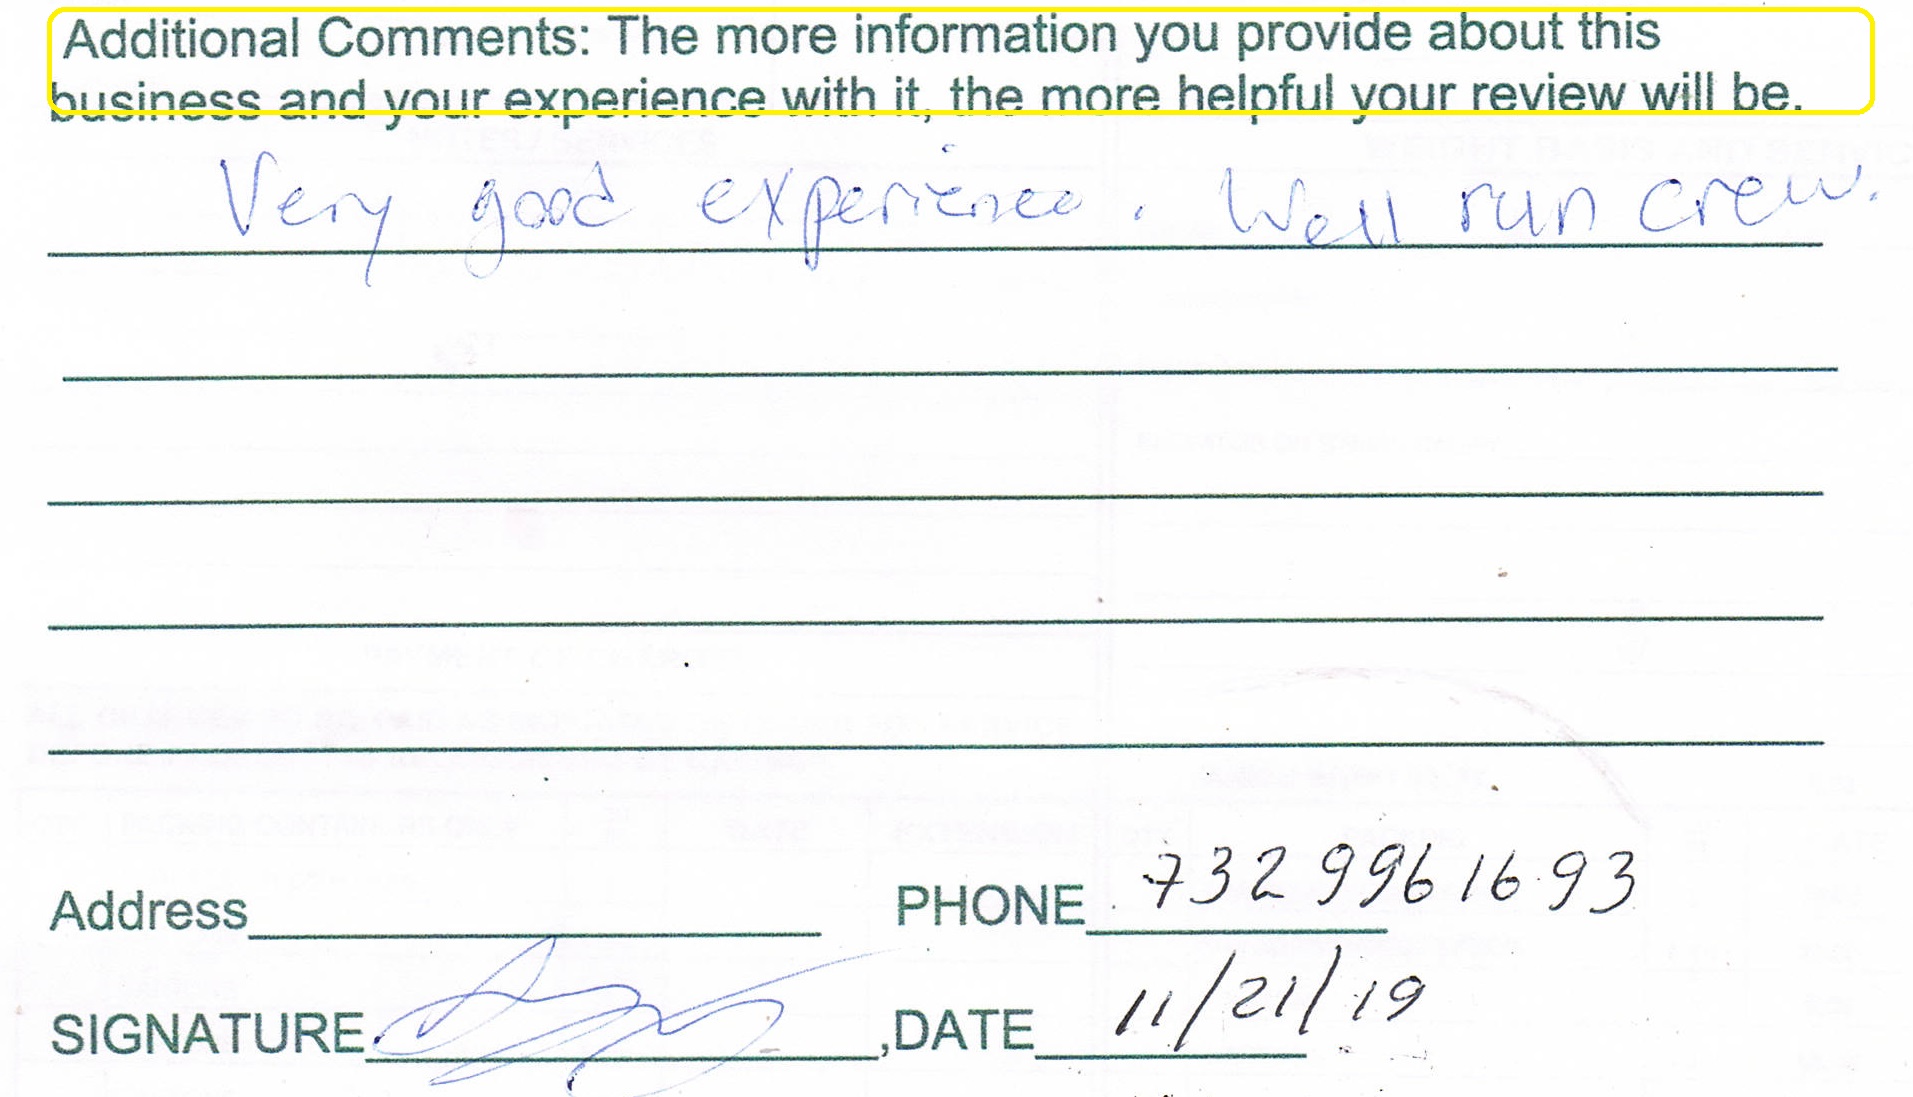 Additional Comments: The more information you provide about this
business and your experience with it, the more helpful your review will be.
Very good experience. Well run crew.
Address PHONE 732 996 1693
SIGNATURE ,DATE 11/21/19